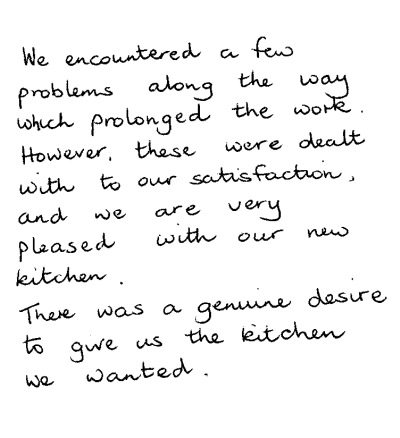 We encountered a few
problems along the way
which prolonged the work.
However, these were dealt
with to our satisfaction,
and we are very
pleased with our new
kitchen.
There was a genuine desire
to give us the kitchen
we wanted.